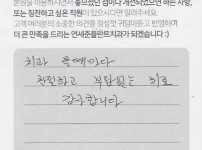 본원을 이용하시면서 좋으셨던 점이나 개선되었으면 하는 사항,
또는 칭찬하고 싶은 직원이 있으시다면 알려주세요.
고객 여러분의 소중한 의견을 정성껏 귀담아듣고 반영하여
더 큰 만족을 드리는 연세준플란트치과가 되겠습니다 :)
치과 올때마다
친절하고 부담없는 치료
감사합니다